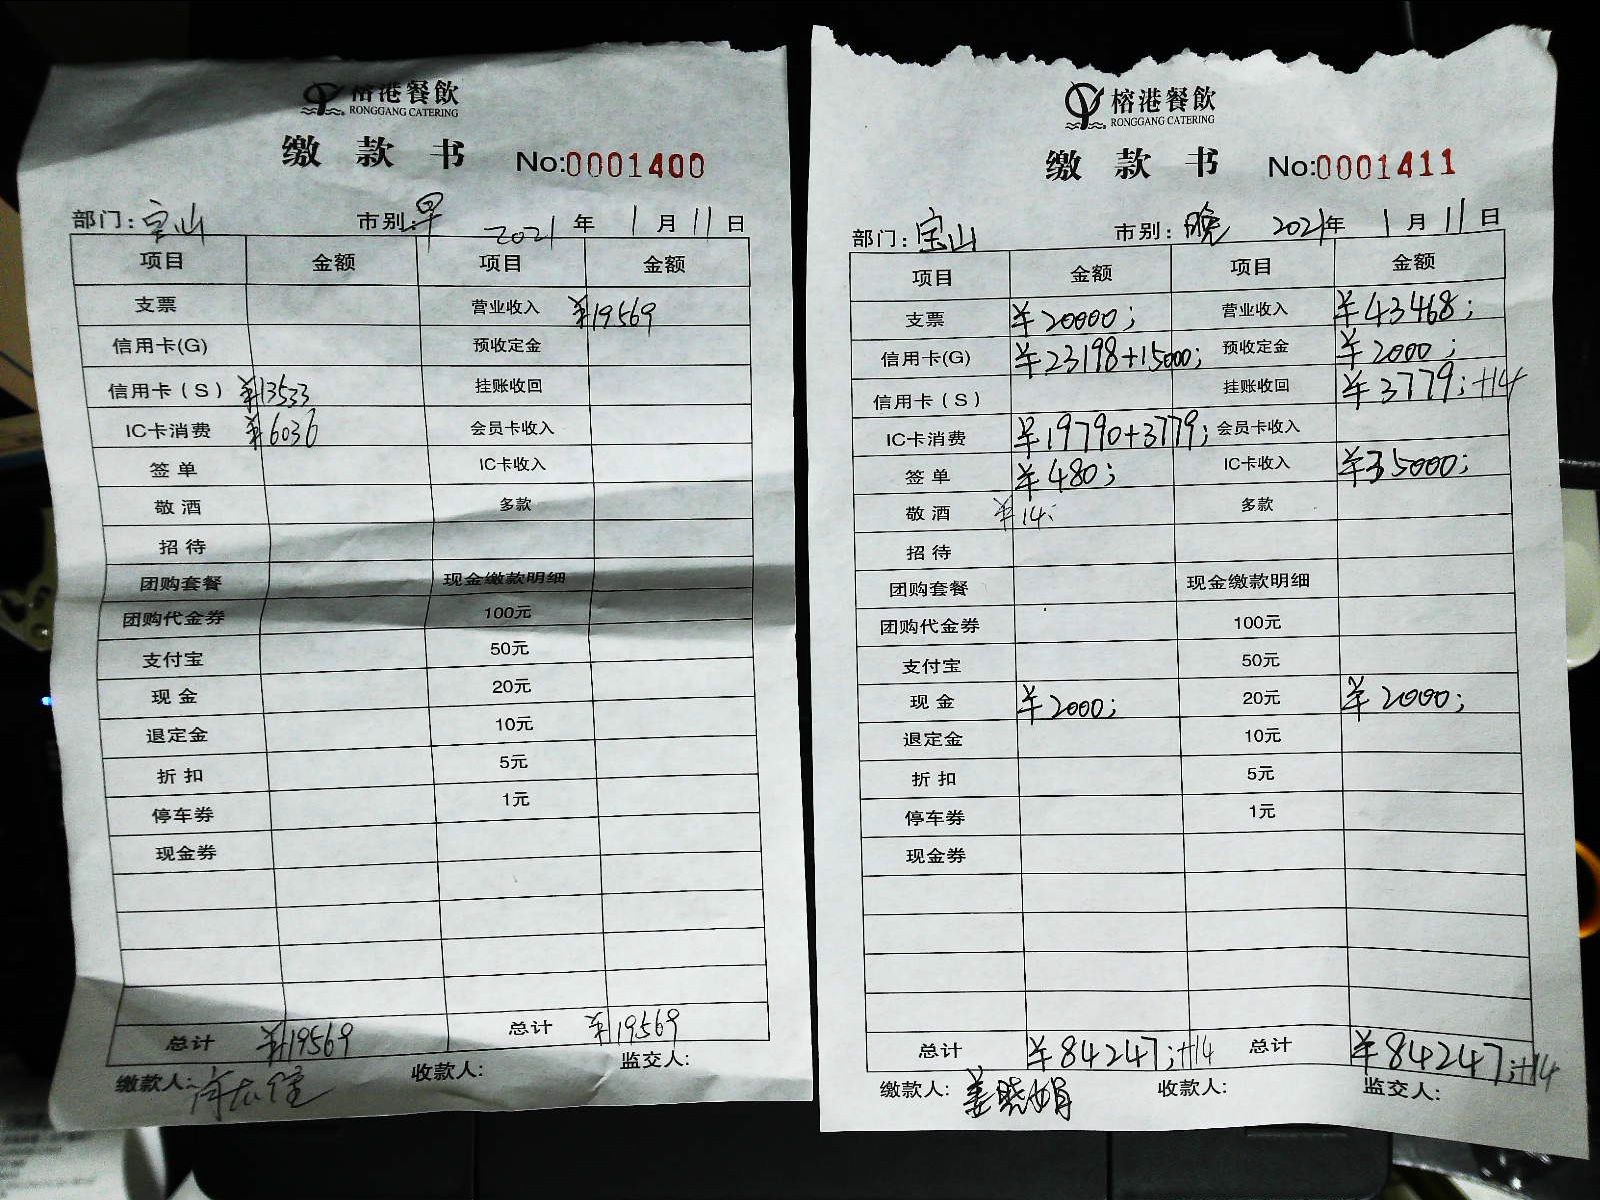 榕港餐飲
RONGGANG CATERING
缴款书 No:0001400
部门: 宝山 市别: 早 2021年 1月 11日
项目 金额 项目 金额
支票 营业收入 ¥19569
信用卡(G) 预收定金
信用卡(S) ¥13533 挂账收回
IC卡消费 ¥6036 会员卡收入
签单 IC卡收入
敬酒 多款
招待
团购套餐 现金缴款明细
团购代金券 100元
支付宝 50元
现金 20元
退定金 10元
折扣 5元
停车券 1元
现金券
总计 ¥19569 总计 ¥19569
缴款人: 收款人: 监交人:
榕港餐飲
RONGGANG CATERING
缴款书 No:0001411
部门: 宝山 市别: 晚 2021年 1月 11日
项目 金额 项目 金额
支票 ¥20000; 营业收入 ¥43468;
信用卡(G) ¥23198+15000; 预收定金 ¥2000;
信用卡(S) 挂账收回 ¥3779;+14
IC卡消费 ¥19790+3779; 会员卡收入
签单 ¥480; IC卡收入 ¥35000;
敬酒 ¥14; 多款
招待
团购套餐 现金缴款明细
团购代金券 100元
支付宝 50元
现金 ¥2000; 20元 ¥2000;
退定金 10元
折扣 5元
停车券 1元
现金券
总计 ¥84247;+14 总计 ¥84247;+14
缴款人: 姜晓娟 收款人: 监交人: